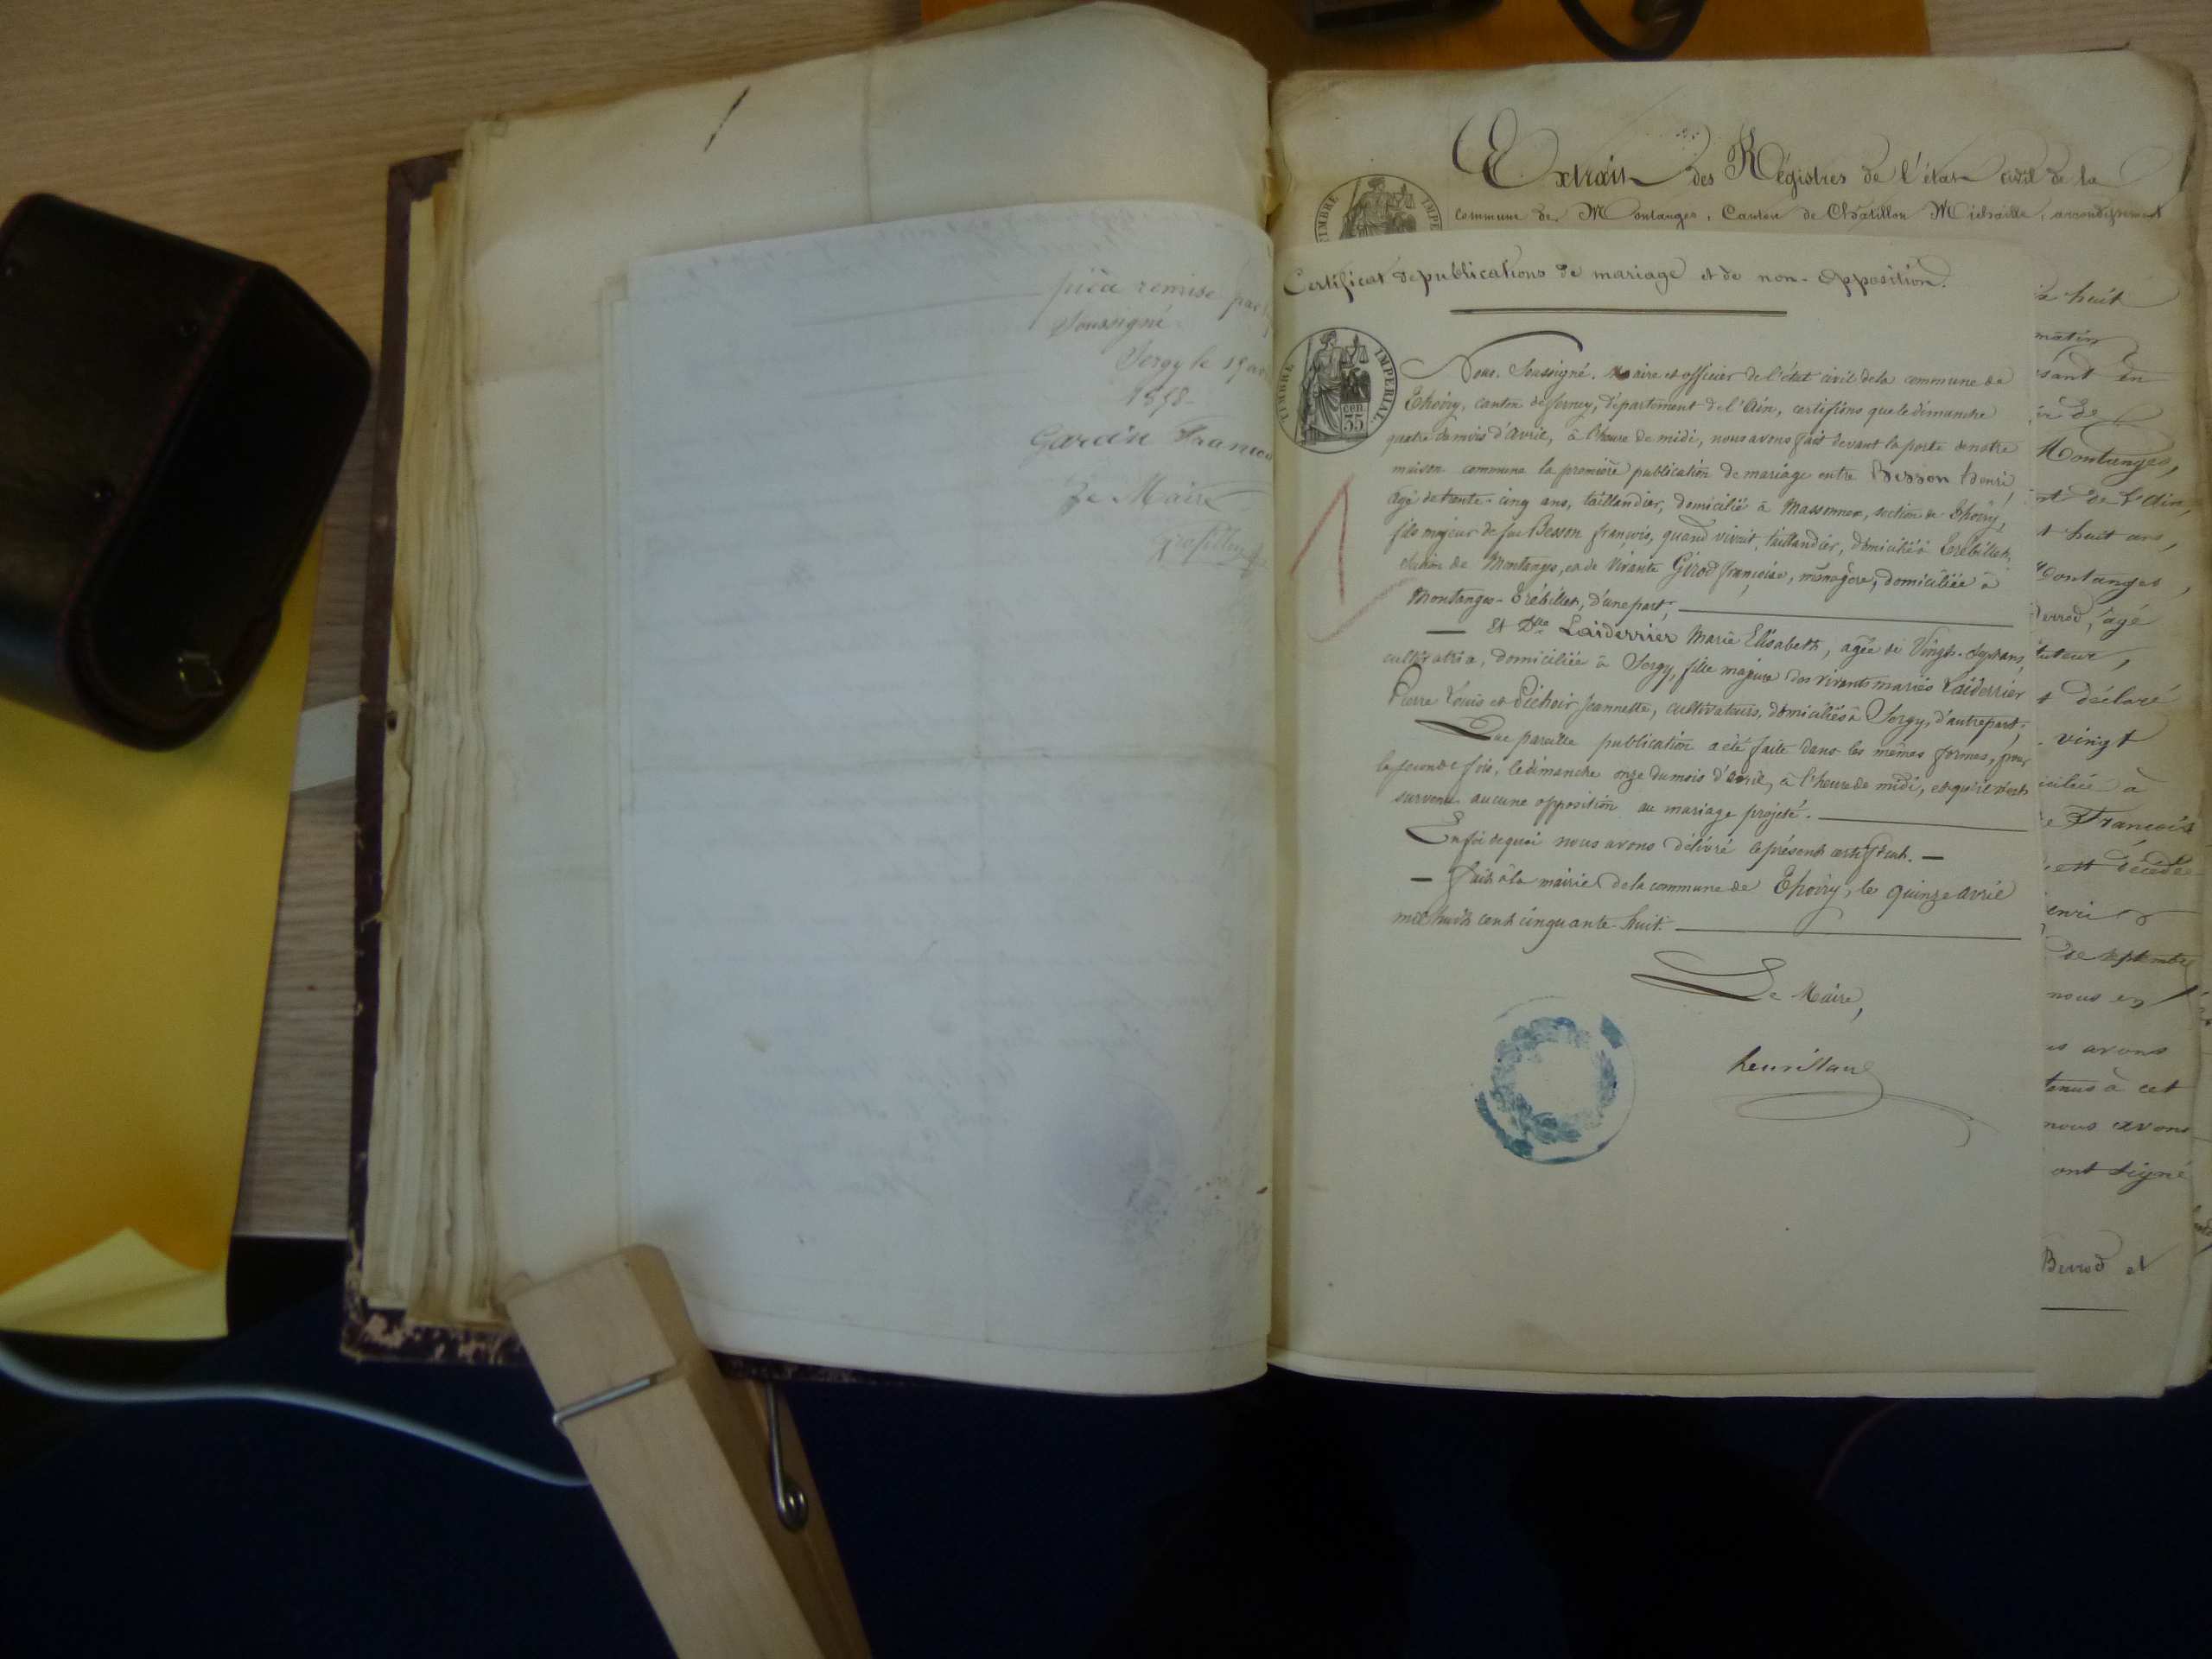 pièce remise par
Soussigné
Sergy le 19 av
1858-
Garcin Franco
Le Maire
Extrait des Régistres de l'état civil de la
commune de Montanges, Canton de Châtillon Michaille, arrondissement
TIMBRE IMPE
Certificat de publications de mariage et de non-opposition.
TIMBRE IMPERIAL
cen. 35
Nous. Soussigné. Maire et officier de l'état civil de la commune de
Thoiry, canton de ferney, département de l'Ain, certifions que le dimanche
quatre du mois d'avril, à l'heure de midi, nous avons fait devant la porte de notre
maison commune la première publication de mariage entre Besson henri,
âgé de trente-cinq ans, taillandier, domicilié à Massonnex, section de Thoiry,
fils majeur de feu Besson françois, quand vivait, taillandier, domicilié à Trébillet,
de Montanges, et de vivante Girod françoise, ménagère, domiciliée à
Montanges-Trébillet, d'une part;
— Et Dlle Laiderrier Marie Elisabeth, agée de Vingt-Sept ans,
cultivatrice, domiciliée à Sergy, fille majeure des vivants mariés Laiderrier
Pierre Louis et Jeannette, cultivateurs, domiciliés à Sergy, d'autre part;
Que pareille publication a été faite dans les mêmes formes, pour
la seconde fois, le dimanche onze du mois d'avril, à l'heure de midi, et qu'il n'est
survenu aucune opposition au mariage projeté.
En foi de quoi nous avons délivré le présent certificat. —
— Fait à la mairie de la commune de Thoiry, le quinze avril
mil huit cent cinquante-huit.
Le Maire,
huit
matin
de
Montanges,
de l'Ain,
huit ans,
Montanges,
âgé
déclaré
vingt
à
François
est décédée
enri
de septembre
nous en
avons
tenus à cet
nous avons
ont signé
Berrod et